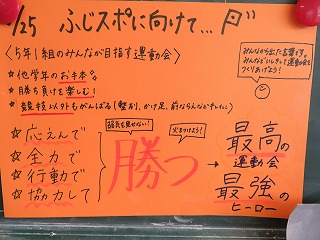 /25 ふじスポに向けて…
〈5年1組のみんなが目指す運動会〉
☆他学年のお手本。
☆勝ち負けを楽しむ!
☆競技以外もがんばる(整列、かけ足、前ならえなど
みんなから出た言葉です。
つくりあげよう!
☆応えんで
☆全力で
☆行動で
☆協力して
弱気を見せない!
火をつけよう!
勝つ
→
最高の
運動会
最強の
ヒーロー